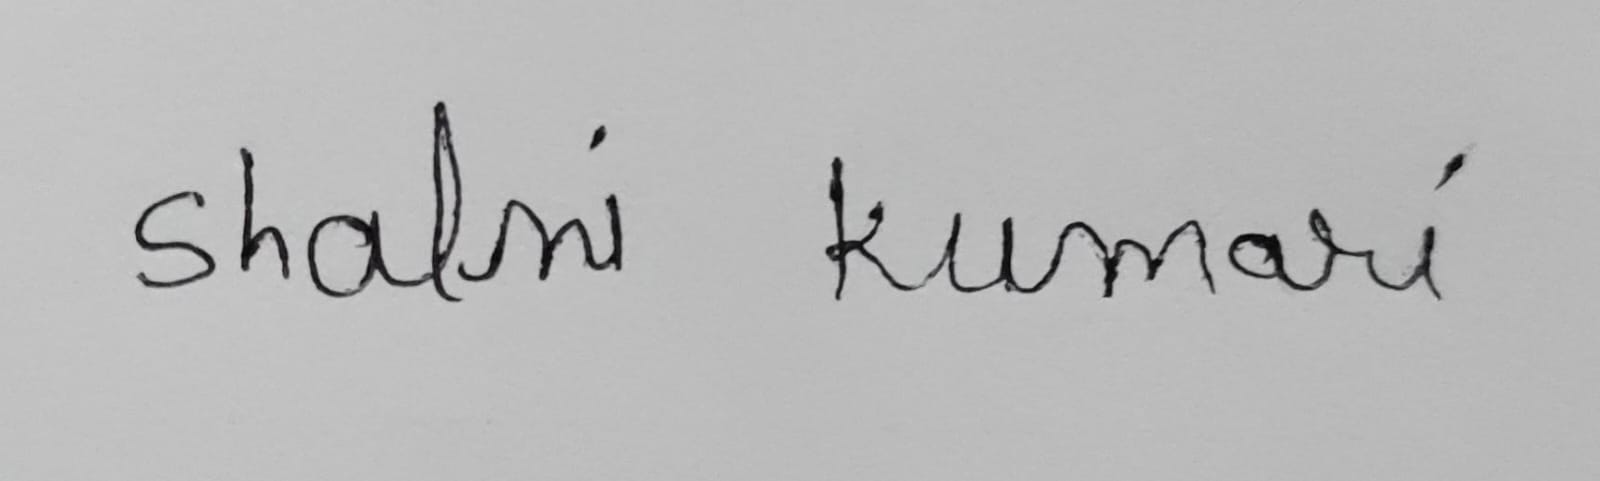 shalni kumari